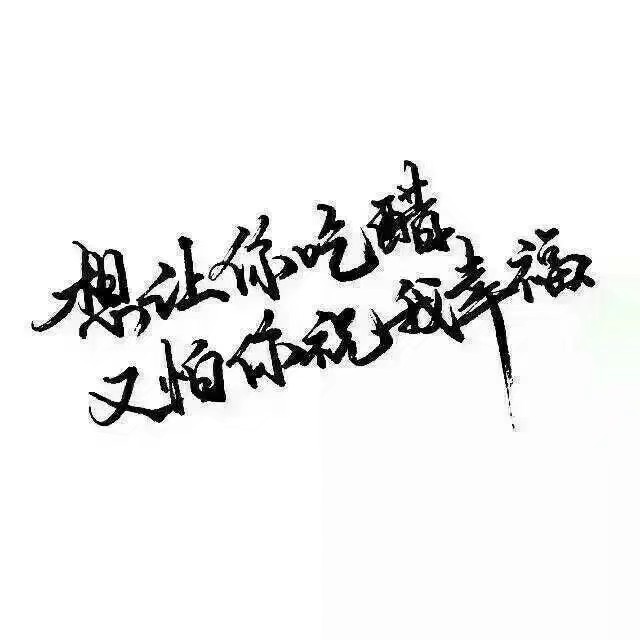 想让你吃醋
又怕你祝我幸福